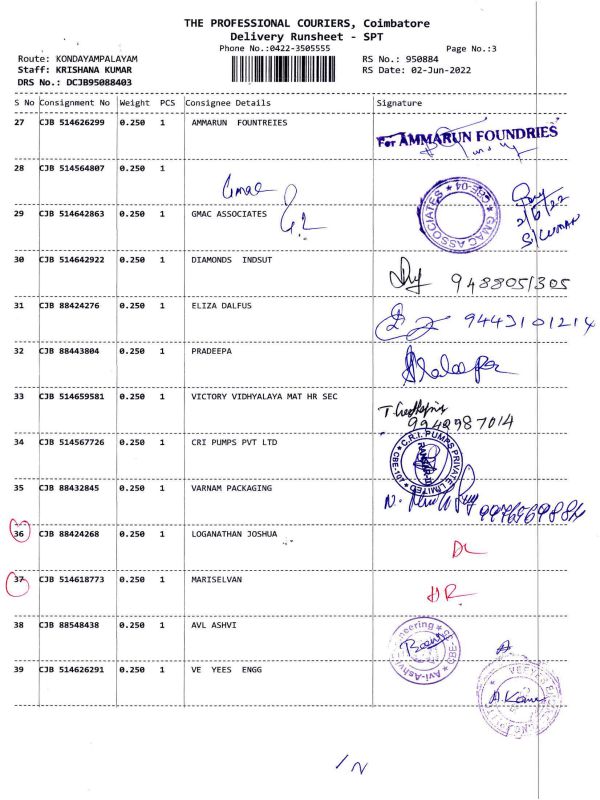 THE PROFESSIONAL COURIERS, Coimbatore
Delivery Runsheet - SPT
Phone No.:0422-3505555 Page No.:3
Route: KONDAYAMPALAYAM RS No.: 950884
Staff: KRISHANA KUMAR RS Date: 02-Jun-2022
DRS No.: DCJB95088403
S No Consignment No Weight PCS Consignee Details Signature
27 CJB 514626299 0.250 1 AMMARUN FOUNTREIES
For AMMARUN FOUNDRIES
28 CJB 514564807 0.250 1
Gmac
29 CJB 514642863 0.250 1 GMAC ASSOCIATES
GMAC ASSOCIATES * CBE-04 *
2/6/22
30 CJB 514642922 0.250 1 DIAMONDS INDSUT
9488051305
31 CJB 88424276 0.250 1 ELIZA DALFUS
9443101214
32 CJB 88443804 0.250 1 PRADEEPA
33 CJB 514659581 0.250 1 VICTORY VIDHYALAYA MAT HR SEC
9942987014
34 CJB 514567726 0.250 1 CRI PUMPS PVT LTD
C.R.I. PUMPS PRIVATE LIMITED
35 CJB 88432845 0.250 1 VARNAM PACKAGING
36 CJB 88424268 0.250 1 LOGANATHAN JOSHUA
DL
37 CJB 514618773 0.250 1 MARISELVAN
DR
38 CJB 88548438 0.250 1 AVL ASHVI
39 CJB 514626291 0.250 1 VE YEES ENGG